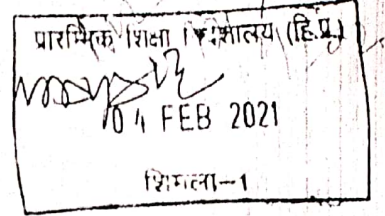 प्रारम्भिक शिक्षा निदेशालय (हि.प्र.)
04 FEB 2021
शिमला-1